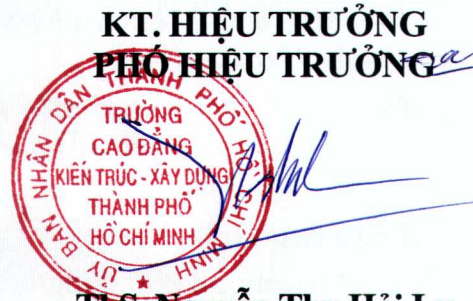 KT. HIỆU TRƯỞNG
PHÓ HIỆU TRƯỞNG
ỦY BAN NHÂN DÂN THÀNH PHỐ HỒ CHÍ MINH
TRƯỜNG
CAO ĐẲNG
KIẾN TRÚC - XÂY DỰNG
THÀNH PHỐ
HỒ CHÍ MINH
ThS. Nguyễn Thụy Hải